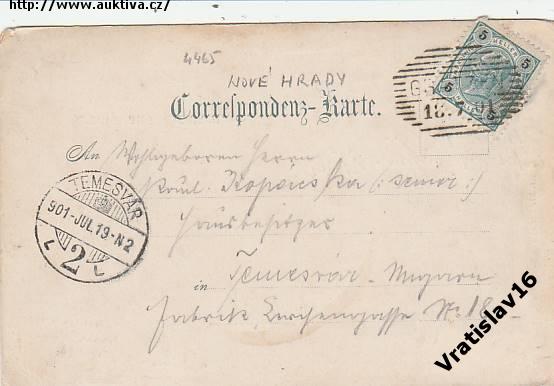 http://www.auktiva.cz/
4465
NOVÉ HRADY
Correspondenz-Karte.
5 HELLER 5
18.7.01
An Wohlgeboren Herrn
(: senior :)
Hausbesitzer
TEMESVÁR
901-JUL.19-N2
L 2 L
in Temesvár - Ungarn
Fabrik No 18
Vratislav16